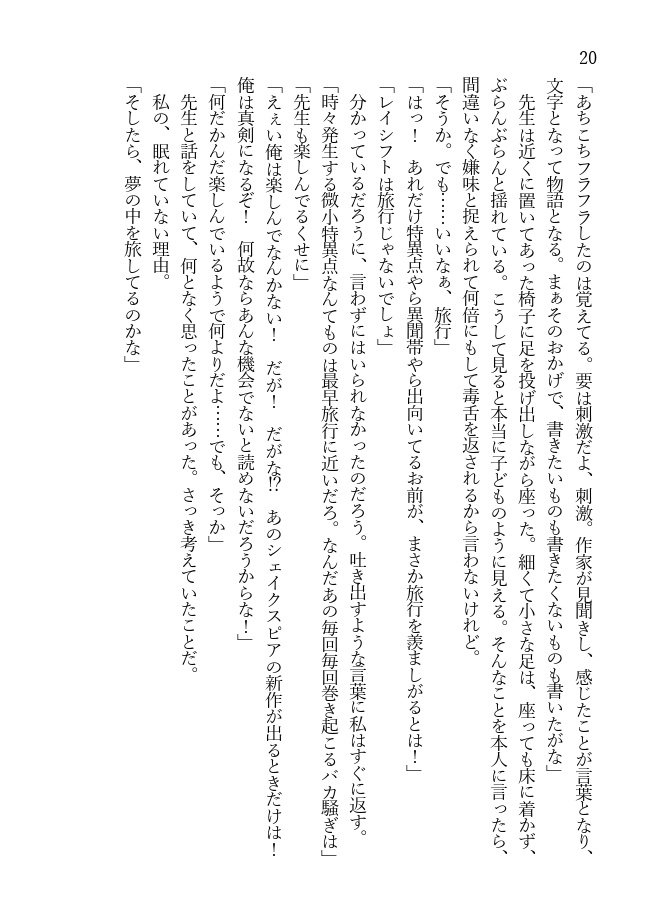 20
「あちこちフラフラしたのは覚えてる。要は刺激だよ、刺激。作家が見聞きし、感じたことが言葉となり、
文字となって物語となる。まぁそのおかげで、書きたいものも書きたくないものも書いたがな」
　先生は近くに置いてあった椅子に足を投げ出しながら座った。細くて小さな足は、座っても床に着かず、
ぶらんぶらんと揺れている。こうして見ると本当に子どものように見える。そんなことを本人に言ったら、
間違いなく嫌味と捉えられて何倍にもして毒舌を返されるから言わないけれど。
「そうか。でも……いいなぁ、旅行」
「はっ！　あれだけ特異点やら異聞帯やら出向いてるお前が、まさか旅行を羨ましがるとは！」
「レイシフトは旅行じゃないでしょ」
　分かっているだろうに、言わずにはいられなかったのだろう。吐き出すような言葉に私はすぐに返す。
「時々発生する微小特異点なんてものは最早旅行に近いだろ。なんだあの毎回毎回巻き起こるバカ騒ぎは」
「先生も楽しんでるくせに」
「えぇい俺は楽しんでなんかない！　だが！　だがな⁉　あのシェイクスピアの新作が出るときだけは！
俺は真剣になるぞ！　何故ならあんな機会でないと読めないだろうからな！」
「何だかんだ楽しんでいるようで何よりだよ……でも、そっか」
　先生と話をしていて、何となく思ったことがあった。さっき考えていたことだ。
　私の、眠れていない理由。
「そしたら、夢の中を旅してるのかな」